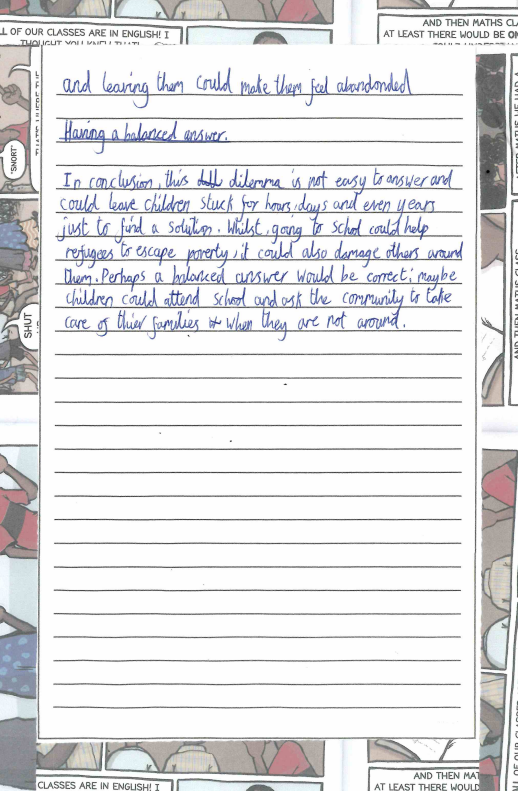 LL OF OUR CLASSES ARE IN ENGLISH! I
AND THEN MATHS CLA
AT LEAST THERE WOULD BE ON
"SNORT"
SHUT
and leaving them could make them feel abandonded
Having a balanced answer.
In conclusion, this dilemma is not easy to answer and
could leave children stuck for hours, days and even years
just to find a solution. Whilst, going to school could help
refugees to escape poverty, it could also damage others around
them. Perhaps a balanced answer would be correct; maybe
children could attend school and ask the community to take
care of thier families when they are not around.
CLASSES ARE IN ENGLISH! I
AND THEN MAT
AT LEAST THERE WOULD